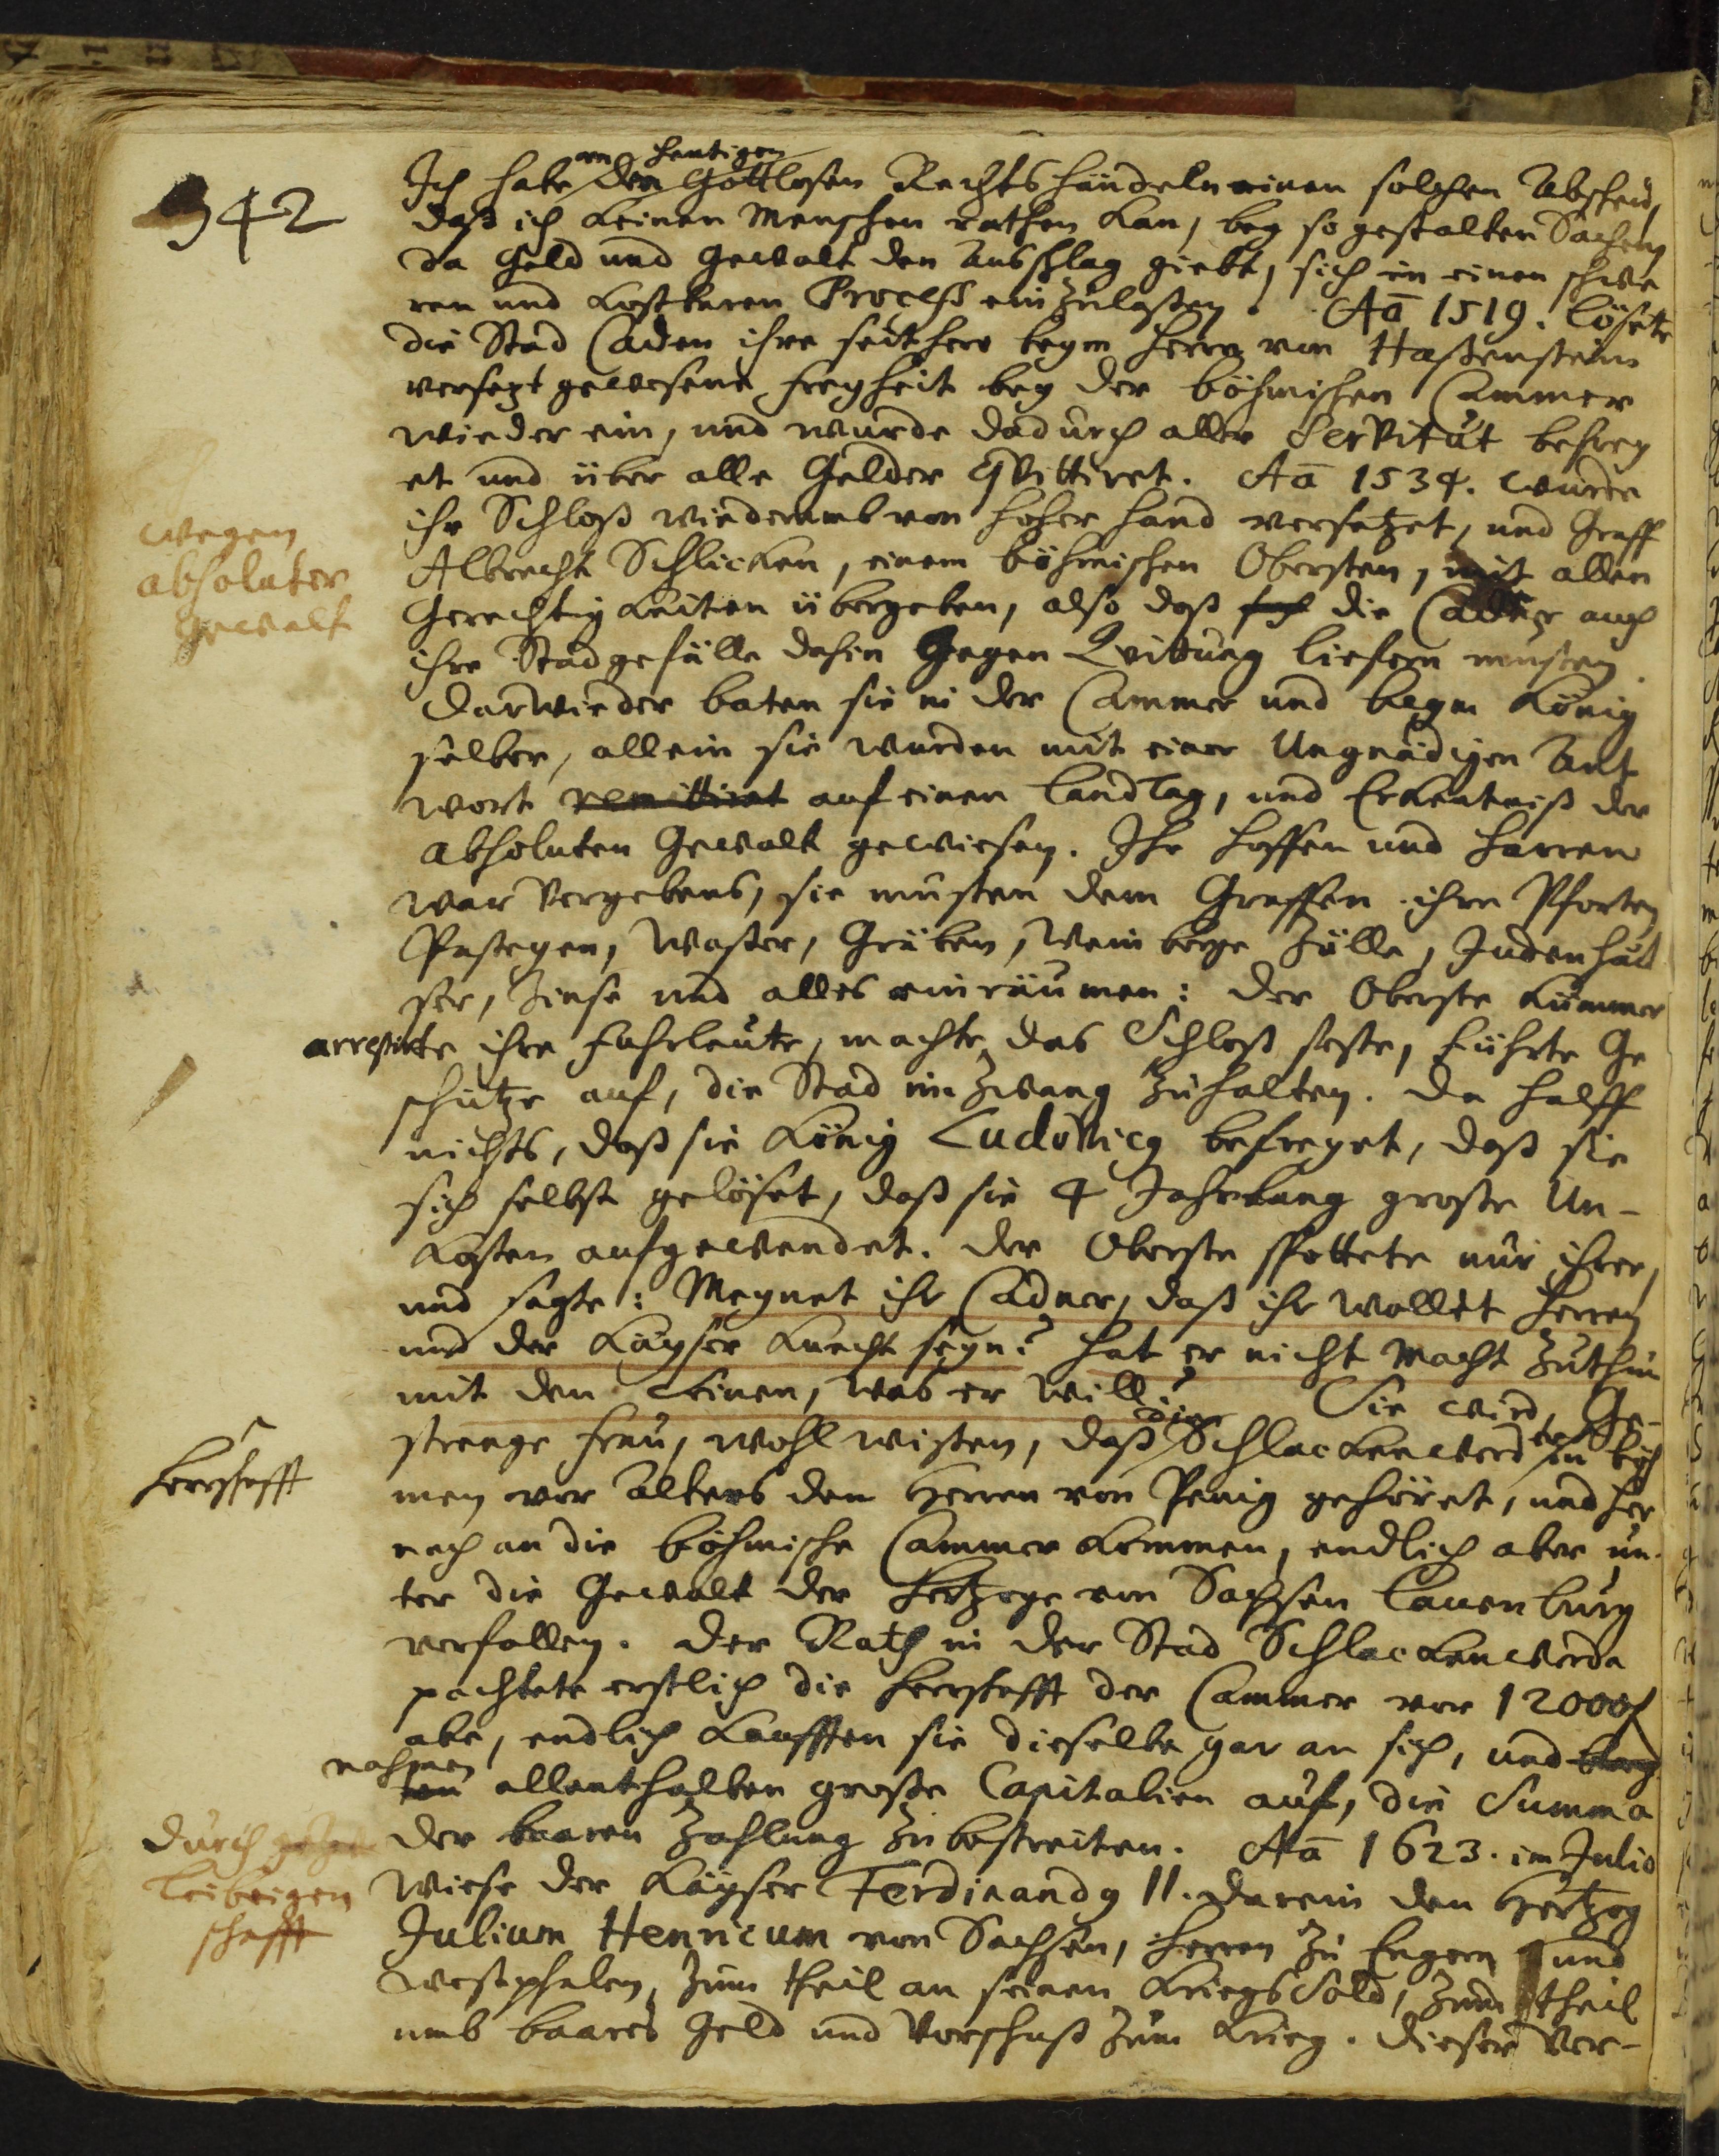 342
an heutigen
Ich habe den Gottlosen Rechtshändeln einen solchen Abscheu,
daß ich keinen Menschen rathen kan, bey so gestalten Sachen
da Geld und Gewalt den Ausschlag giebt, sich in einen schwe
ren und kostbaren Process einzulaßen. Aō 1519. lösete
die Stad Caden ihre seithero beym Herrn von Haßenstein
versezt gewesene freyheit bey der böhmischen Cammer
wieder ein, und wurde dadurch aller Servitut befrey
et und über alle Gelder qvittiret. Aō 1534. wurde
ihr Schloß wiederumb von hoher Hand versetzet, und Graff
Albrecht Schlicken, einem böhmischen Obersten, mit allen
Gerechtigkeiten übergeben, also daß die Cadner auch
ihre Stadgefälle dahin gegen Qvittung liefern musten
wegen
absoluter
Gewalt
darwieder baten sie in der Cammer und beym König
selber, allein sie wurden mit einer Ungnädigen Ant
wort remittiret auf einen Landtag, und Erkentniß der
absoluten Gewalt gewiesen. Ihr hoffen und harren
war vergebens, sie musten dem Graffen ihre Pforten
Pasteyen, Waßer, Gräben, Weinberge Zölle, Judenhäu
ser, Zinse und alles einräumen: der Oberste Kümmer
arrestirte ihre Fuhrleute, machte das Schloß feste, führte Ge
schütze auf, die Stad im Zwang zuhalten. Da halff
nichts, daß sie König Ludovicq befreyet, daß sie
sich selbst gelöset, daß sie 4 Jahrlang große Un-
kosten aufgewendet. Der Oberste spottete nur ihrer,
und sagte: Meynet ihr Cadner, daß ihr wollet Herren
und der Käyser Knecht seyn? hat er nicht Macht zuthun
mit den Seinen, was er will? Sie wird, Ge-
strenge Frau, wohl wißen, daß die Schlackenwerd in Böh
Herrschafft
men vor Alters den Herren von Penig gehöret, und her
nach an die böhmische Cammer kommen, endlich aber un-
ter die Gewalt der Hertzoge von Sachsen Lauenburg
verfallen. Der Rath in der Stad Schlackenwerda
pachtete erstlich die Herrschafft der Cammer vor 12000 f
abe, endlich kaufften sie dieselbe gar an sich, und
nahmen allenthalben große Capitalien auf, die Summa
der baaren Zahlung zubestreiten. Aō 1623. im Julio
durch
Leibeigen
schafft
wiese der Käyser Ferdinandq II. darein den Hertzog
Julium Henricum von Sachsen, Herren zu Engern und
Westphalen, zum theil an seinen Kriegs Sold, zum theil
umb baares Geld und Vorschuß zum Krieg. Dieser ver-